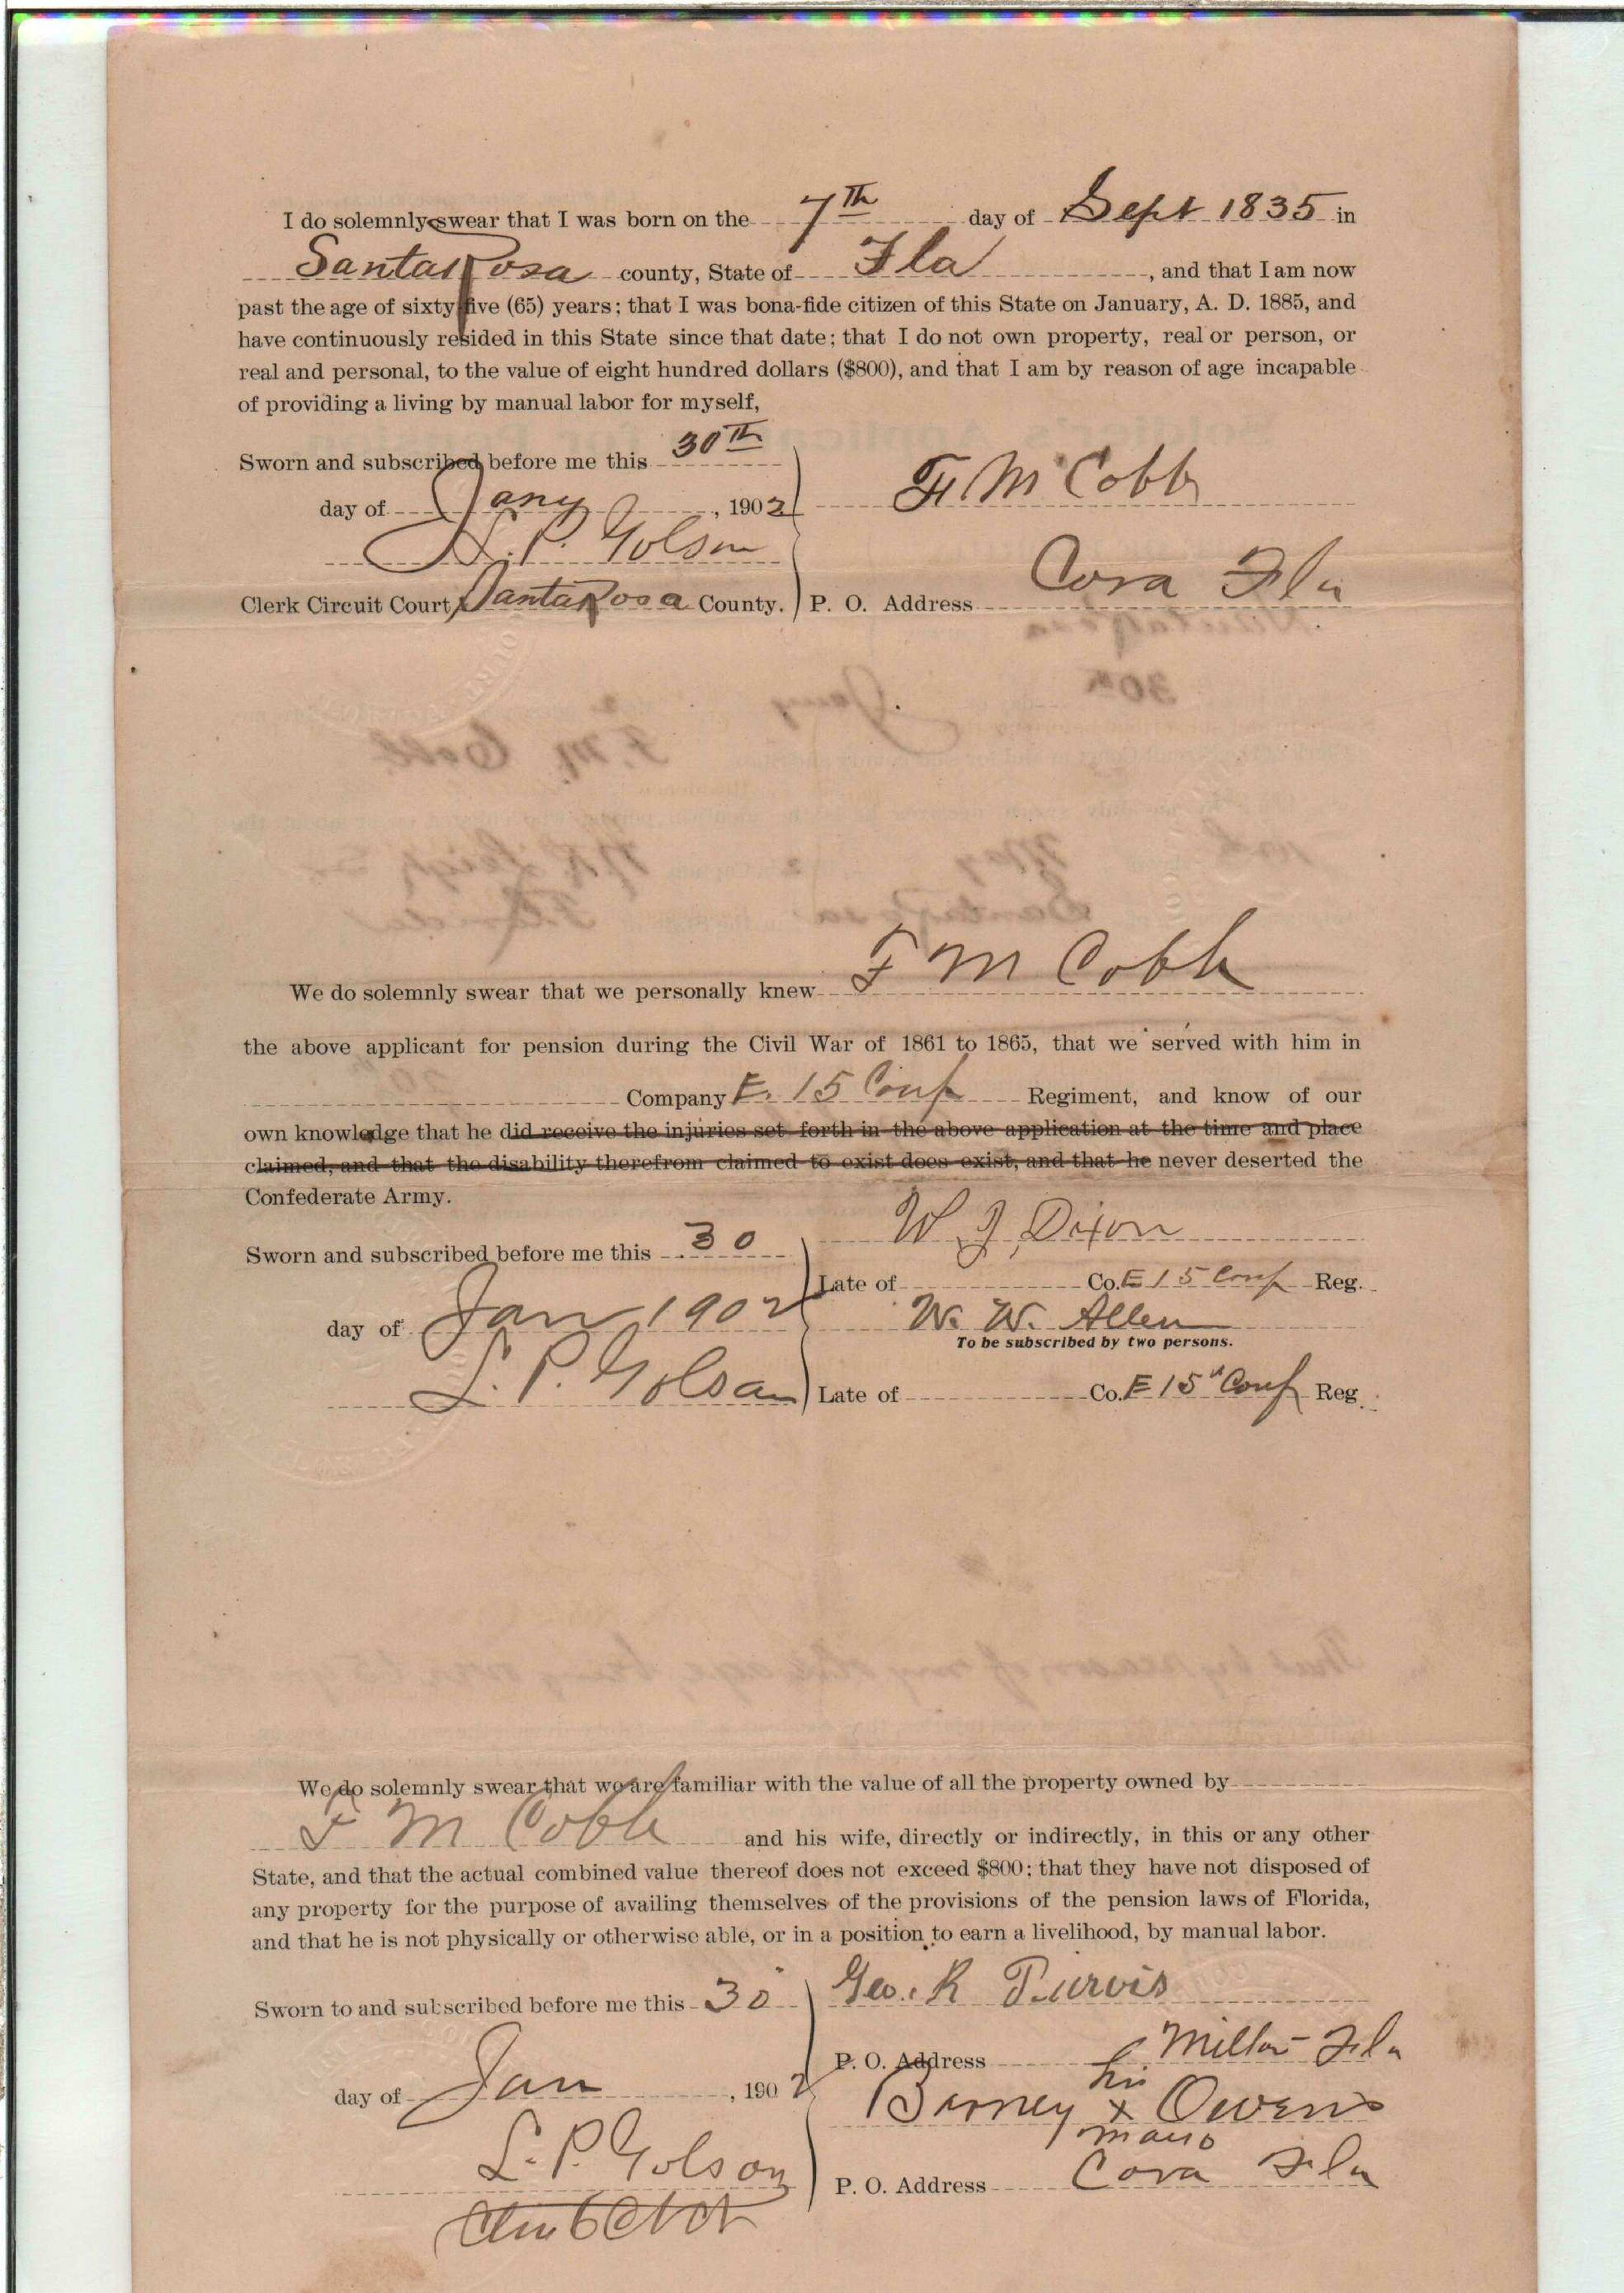 I do solemnly swear that I was born on the 7th day of Sept 1835 in
Santa Rosa county, State of Fla, and that I am now
past the age of sixty five (65) years; that I was bona-fide citizen of this State on January, A. D. 1885, and
have continuously resided in this State since that date; that I do not own property, real or person, or
real and personal, to the value of eight hundred dollars ($800), and that I am by reason of age incapable
of providing a living by manual labor for myself,
Sworn and subscribed before me this 30th
day of Jany, 1902 F. M Cobb
L. P. Golson
Clerk Circuit Court Santa Rosa County. P. O. Address Cora Fla
We do solemnly swear that we personally knew F M Cobb
the above applicant for pension during the Civil War of 1861 to 1865, that we served with him in
Company E. 15 Conf Regiment, and know of our
own knowledge that he did receive the injuries set forth in the above application at the time and place
claimed, and that the disability therefrom claimed to exist does exist, and that he never deserted the
Confederate Army.
W J Dixon
Sworn and subscribed before me this 30
Late of Co. E 15 Conf Reg.
day of Jan 1902 W. W. Allen
To be subscribed by two persons.
L. P. Golson Late of Co. E 15" Conf Reg.
We do solemnly swear that we are familiar with the value of all the property owned by
F M Cobb and his wife, directly or indirectly, in this or any other
State, and that the actual combined value thereof does not exceed $800; that they have not disposed of
any property for the purpose of availing themselves of the provisions of the pension laws of Florida,
and that he is not physically or otherwise able, or in a position to earn a livelihood, by manual labor.
Sworn to and subscribed before me this 30 Geo. R Purvis
P. O. Address Milton Fla
his
day of Jan, 1902 Barney x Owens
mark
L. P. Golson P. O. Address Cora Fla